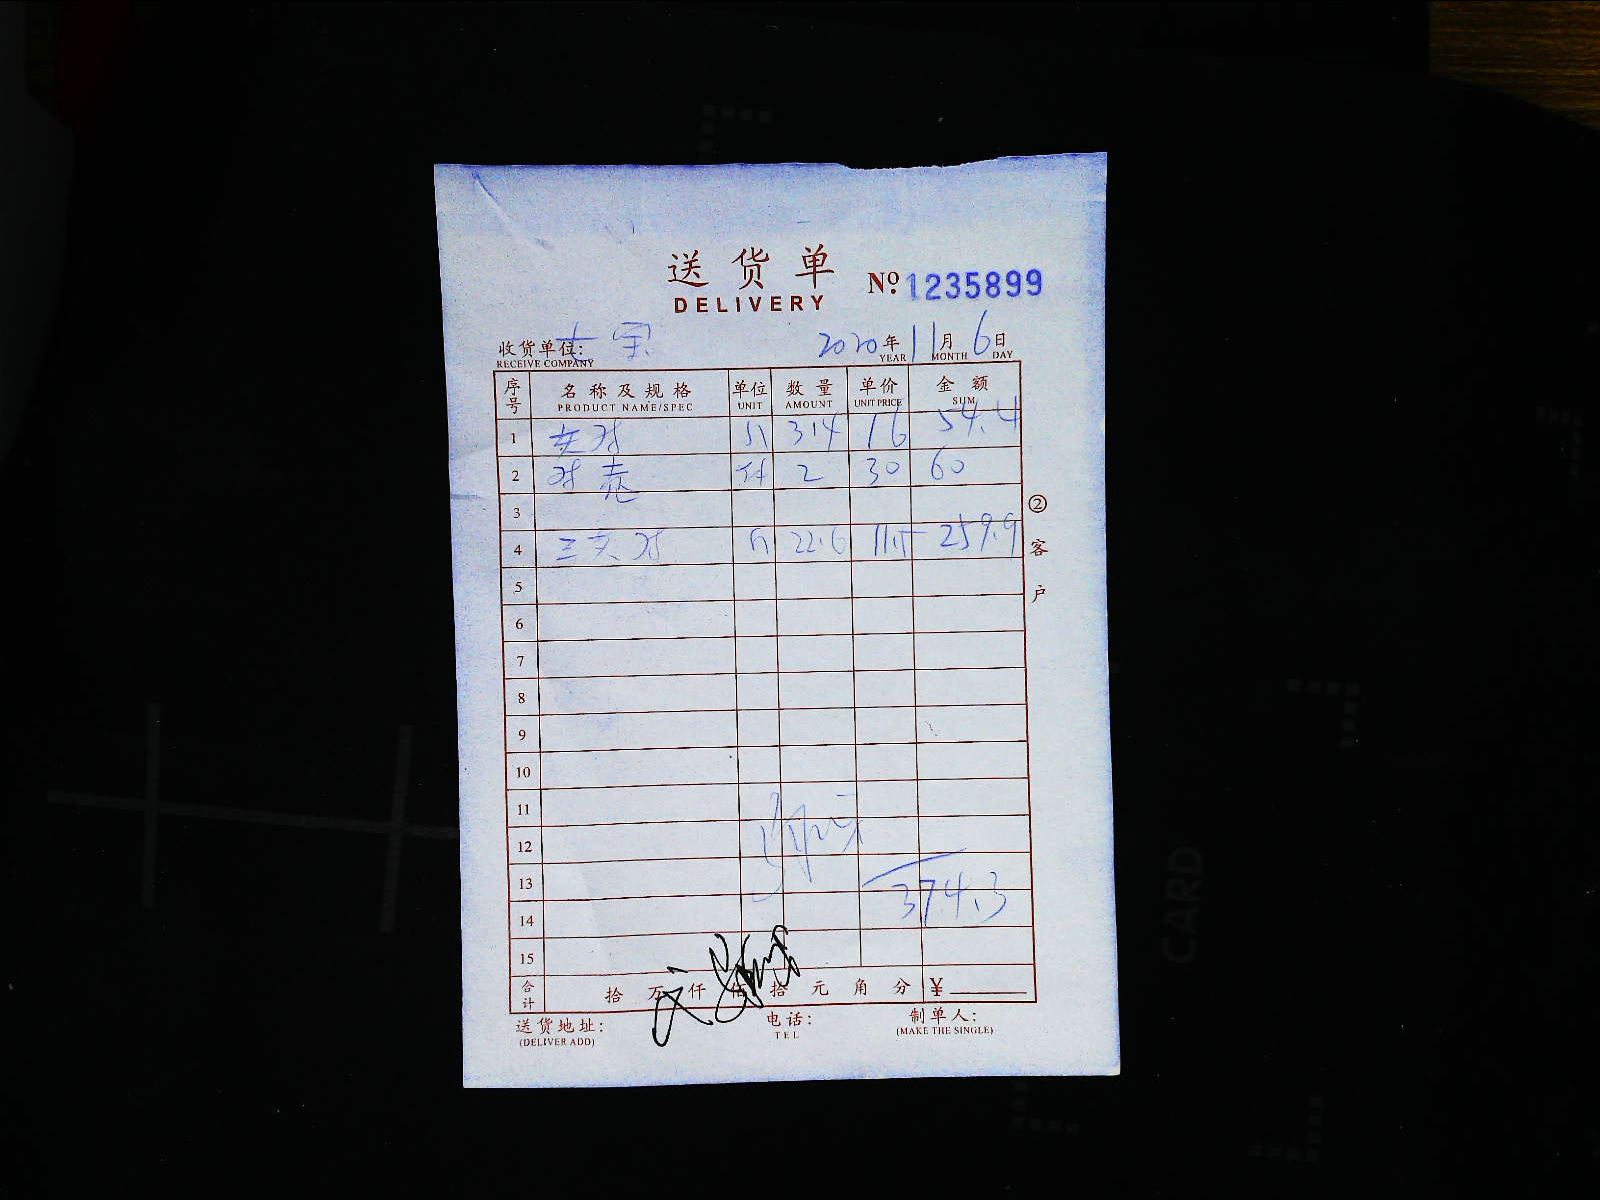 送货单
DELIVERY
№ 1235899
收货单位:
RECEIVE COMPANY
2020年11月6日
YEAR MONTH DAY
序号 名称及规格 单位 数量 单价 金额
PRODUCT NAME/SPEC UNIT AMOUNT UNIT PRICE SUM
1 3.4 16 54.4
2 2 30 60
3
4 22.6 11.5 259.9
5
6
7
8
9
10
11
12
13
374.3
14
15
合计 拾 万 仟 佰 拾 元 角 分 ¥
送货地址: 电话: 制单人:
(DELIVER ADD) TEL (MAKE THE SINGLE)
② 客户
CARD